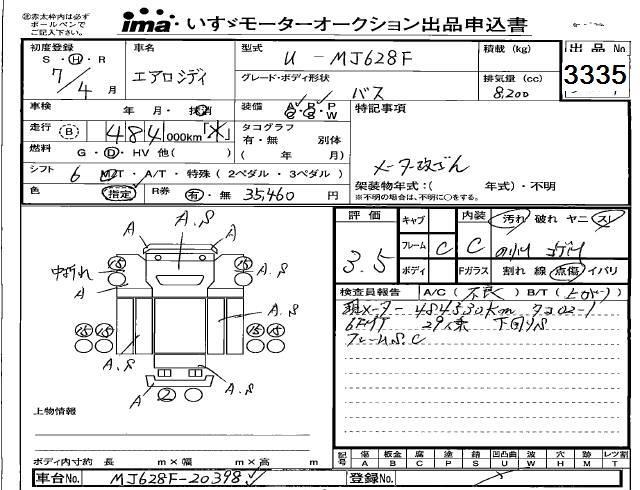 ㊟赤太枠内は必ず
ボールペンで
ご記入下さい。
ima・いすゞモーターオークション出品申込書
初度登録
S・H・R
7/4月
車名
エアロミディ
型式
U-MJ628F
グレード・ボディ形状
バス
積載(kg)
排気量(cc)
8,200
出品No.
3335
車検
年 月・抹消
装備 A P P
C S W
特記事項
メーター改ざん
走行 (B) 484,000km「*」
タコグラフ
有・無 別体
( 年 月)
燃料
G・D・HV 他( )
シフト 6 M/T・A/T・特殊(2ペダル・3ペダル)
架装物年式:( 年式)・不明
※不明の場合は、不明に○をする。
色
指定
R券
有・無 35,460円
評価
3.5
キャブ
フレーム C
ボディ
内装 汚れ 破れ ヤニ スレ
C
Fガラス 割れ 線 点傷 イバリ
検査員報告 A/C(不良) B/T( )
現メーター 484330km
6速MT 29人乗 下回りS
フレームS.C
A.S
A
A
15
15
A.S
中折れ
A
A.S
15 15
15 15
A.S
A.S
A
2
上物情報
ボディ内寸約 長 m×幅 m×高 m
記号
傷 板金 腐 塗 錆 凹凸曲 波 穴 跡 レツ割
A B C P S U W H M T
車台No. MJ628F-20398
登録No.